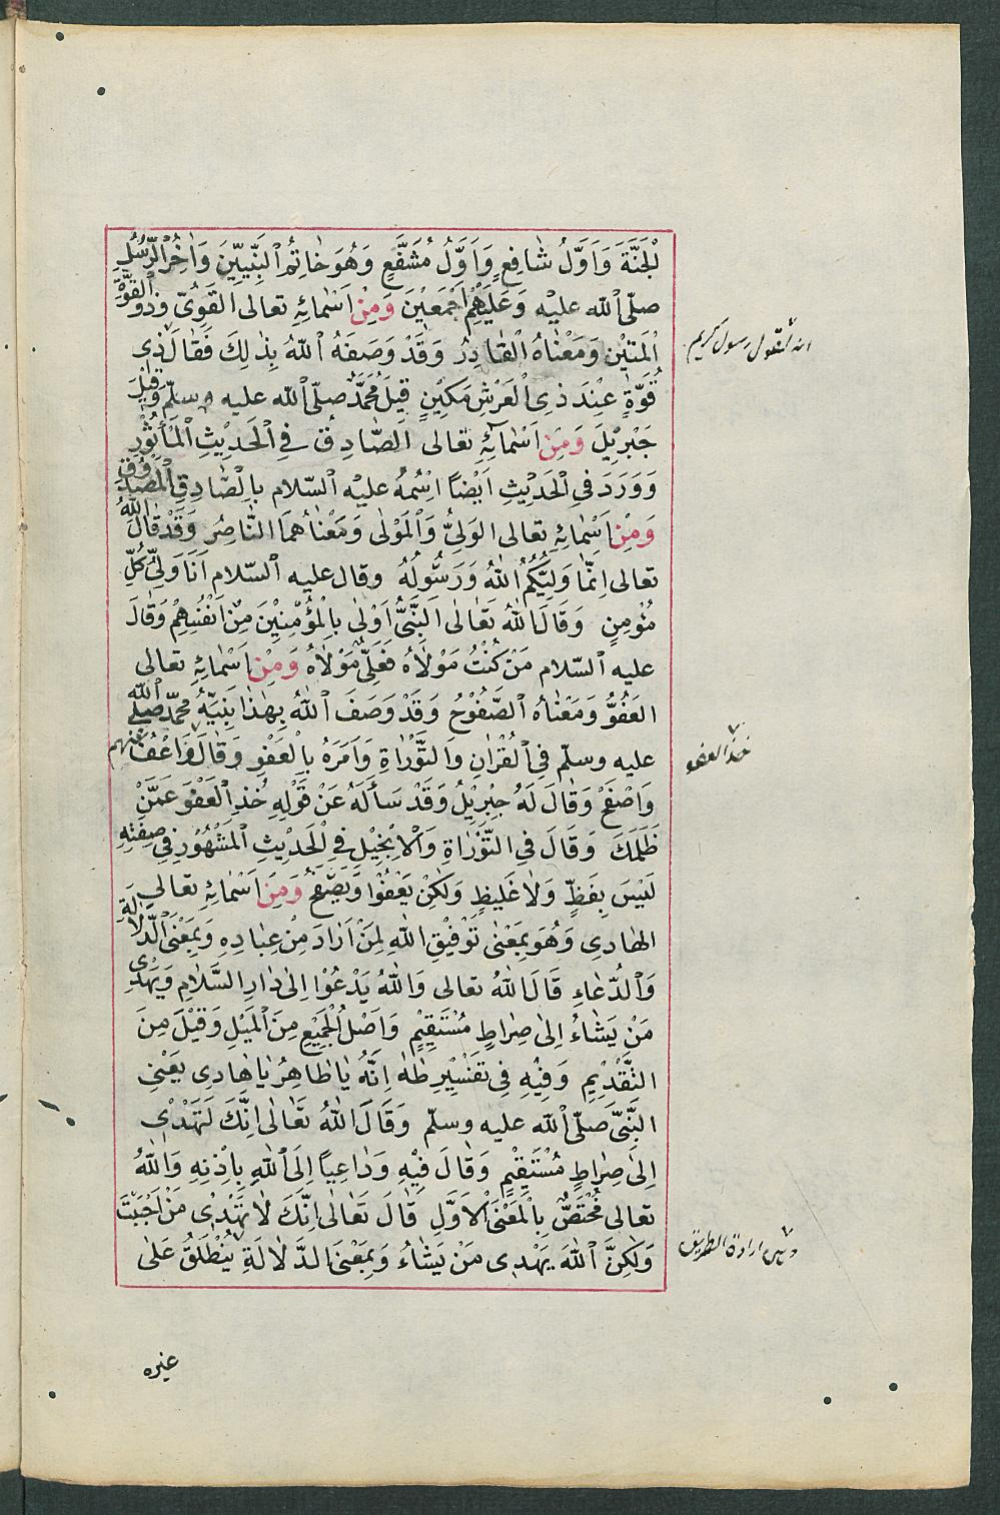 لْجَنَّةَ وَاَوَّلُ شَافِعٍ وَاَوَّلُ مُشَفَّعٍ وَهُوَ خَاتِمُ النَّبِيِّينَ وَاٰخِرُ الرُّسُلِ
صلّى الله عليه وَعَلَيْهِمْ اَجْمَعِيْنَ وَمِنْ اَسْمَائِهِ تعالى القَوِيّ وذو القُوَّةِ
الْمَتِيْنِ وَمَعْنَاهُ القَادِرُ وَقَدْ وَصَفَهُ اللهُ بِذٰلِكَ فَقَالَ ذِى
قُوَّةٍ عِنْدَ ذِى الْعَرْشِ مَكِيْنٍ قِيلَ مُحَمَّدٌ صلّى الله عليه وسلّم وَقِيْلَ
جَبْرِيْلَ وَمِنْ اَسْمَائِهِ تعالى الصَّادِقُ فِى الْحَدِيْثِ الْمَأْثُوْرِ
وَوَرَدَ فِى الْحَدِيْثِ اَيْضًا اِسْمُهُ عليه السّلام بالصَّادِقِ الْمَصْدُوْقِ
وَمِنْ اَسْمَائِهِ تعالى الوَلِىُّ وَالْمَوْلٰى وَمَعْنَاهُمَا النَّاصِرُ وَقَدْ قَالَ اللهُ
تعالى اِنَّمَا وَلِيُّكُمُ اللهُ وَرَسُولُهُ وقال عليه السّلام اَنَا وَلِىُّ كُلِّ
مُؤْمِنٍ وَقَالَ اللهُ تَعَالٰى النَّبِىُّ اَوْلٰى بِالْمُؤْمِنِيْنَ مِنْ اَنْفُسِهِمْ وَقَالَ
عليه السّلام مَنْ كُنْتُ مَوْلَاهُ فَعَلِىٌّ مَوْلَاهُ وَمِنْ اَسْمَائِهِ تعالى
العَفُوُّ وَمَعْنَاهُ الصَّفُوْحُ وَقَدْ وَصَفَ اللهُ بِهٰذَا نَبِيَّهُ مُحَمَّد صلّى الله
عليه وسلّم فِى الْقُرْاٰنِ وَالتَّوْرَاةِ وَاَمَرَهُ بِالْعَفْوِ وَقَالَ فَاعْفُ عَنْهُم
وَاصْفَحْ وَقَالَ لَهُ جِبْرِيْلُ وَقَدْ سَأَلَهُ عَنْ قَوْلِهِ خُذِ الْعَفْوَ عَمَّنْ
ظَلَمَكَ وَقَالَ فِى التَّوْرَاةِ وَالْاِنْجِيْلِ فِى الْحَدِيْثِ الْمَشْهُوْرِ فِى صِفَتِهِ
لَيْسَ بِفَظٍّ وَلَا غَلِيظٍ وَلٰكِنْ يَعْفُوْا وَيَصْفَحُ وَمِنْ اَسْمَائِهِ تعالى
الهَادِى وَهُوَ بِمَعْنٰى تَوْفِيْقِ اللهِ لِمَنْ اَرَادَ مِنْ عِبَادِهِ وَبِمَعْنَى الدَّلَالَةِ
وَالدُّعَاءِ قَالَ اللهُ تعالى وَاللهُ يَدْعُوْا اِلٰى دَارِ السَّلَامِ وَيَهْدِى
مَنْ يَشَاءُ اِلٰى صِرَاطٍ مُسْتَقِيْمٍ وَاَصْلُ الْجَمِيْعِ مِنَ الْمَيْلِ وَقِيْلَ مِنَ
التَّقْدِيْمِ وَفِيْهِ فِى تَفْسِيْرِ طٰهٰ اِنَّهُ يَا طَاهِرُ يَا هَادِى يَعْنِى
النَّبِىَّ صلّى الله عليه وسلّم وَقَالَ اللهُ تَعَالٰى اِنَّكَ لَتَهْدِى
اِلٰى صِرَاطٍ مُسْتَقِيْمٍ وَقَالَ فِيْهِ وَدَاعِيًا اِلَى اللهِ بِاِذْنِهِ وَاللهُ
تعالى مُخْتَصٌّ بِالْمَعْنَى الْاَوَّلِ قَالَ تَعَالٰى اِنَّكَ لَا تَهْدِى مَنْ اَحْبَبْتَ
وَلٰكِنَّ اللهَ يَهْدِى مَنْ يَشَاءُ وَبِمَعْنَى الدَّلَالَةِ يُنْطَلَقُ عَلٰى
غيره
انه لقول رسول كريم
خذ العفو